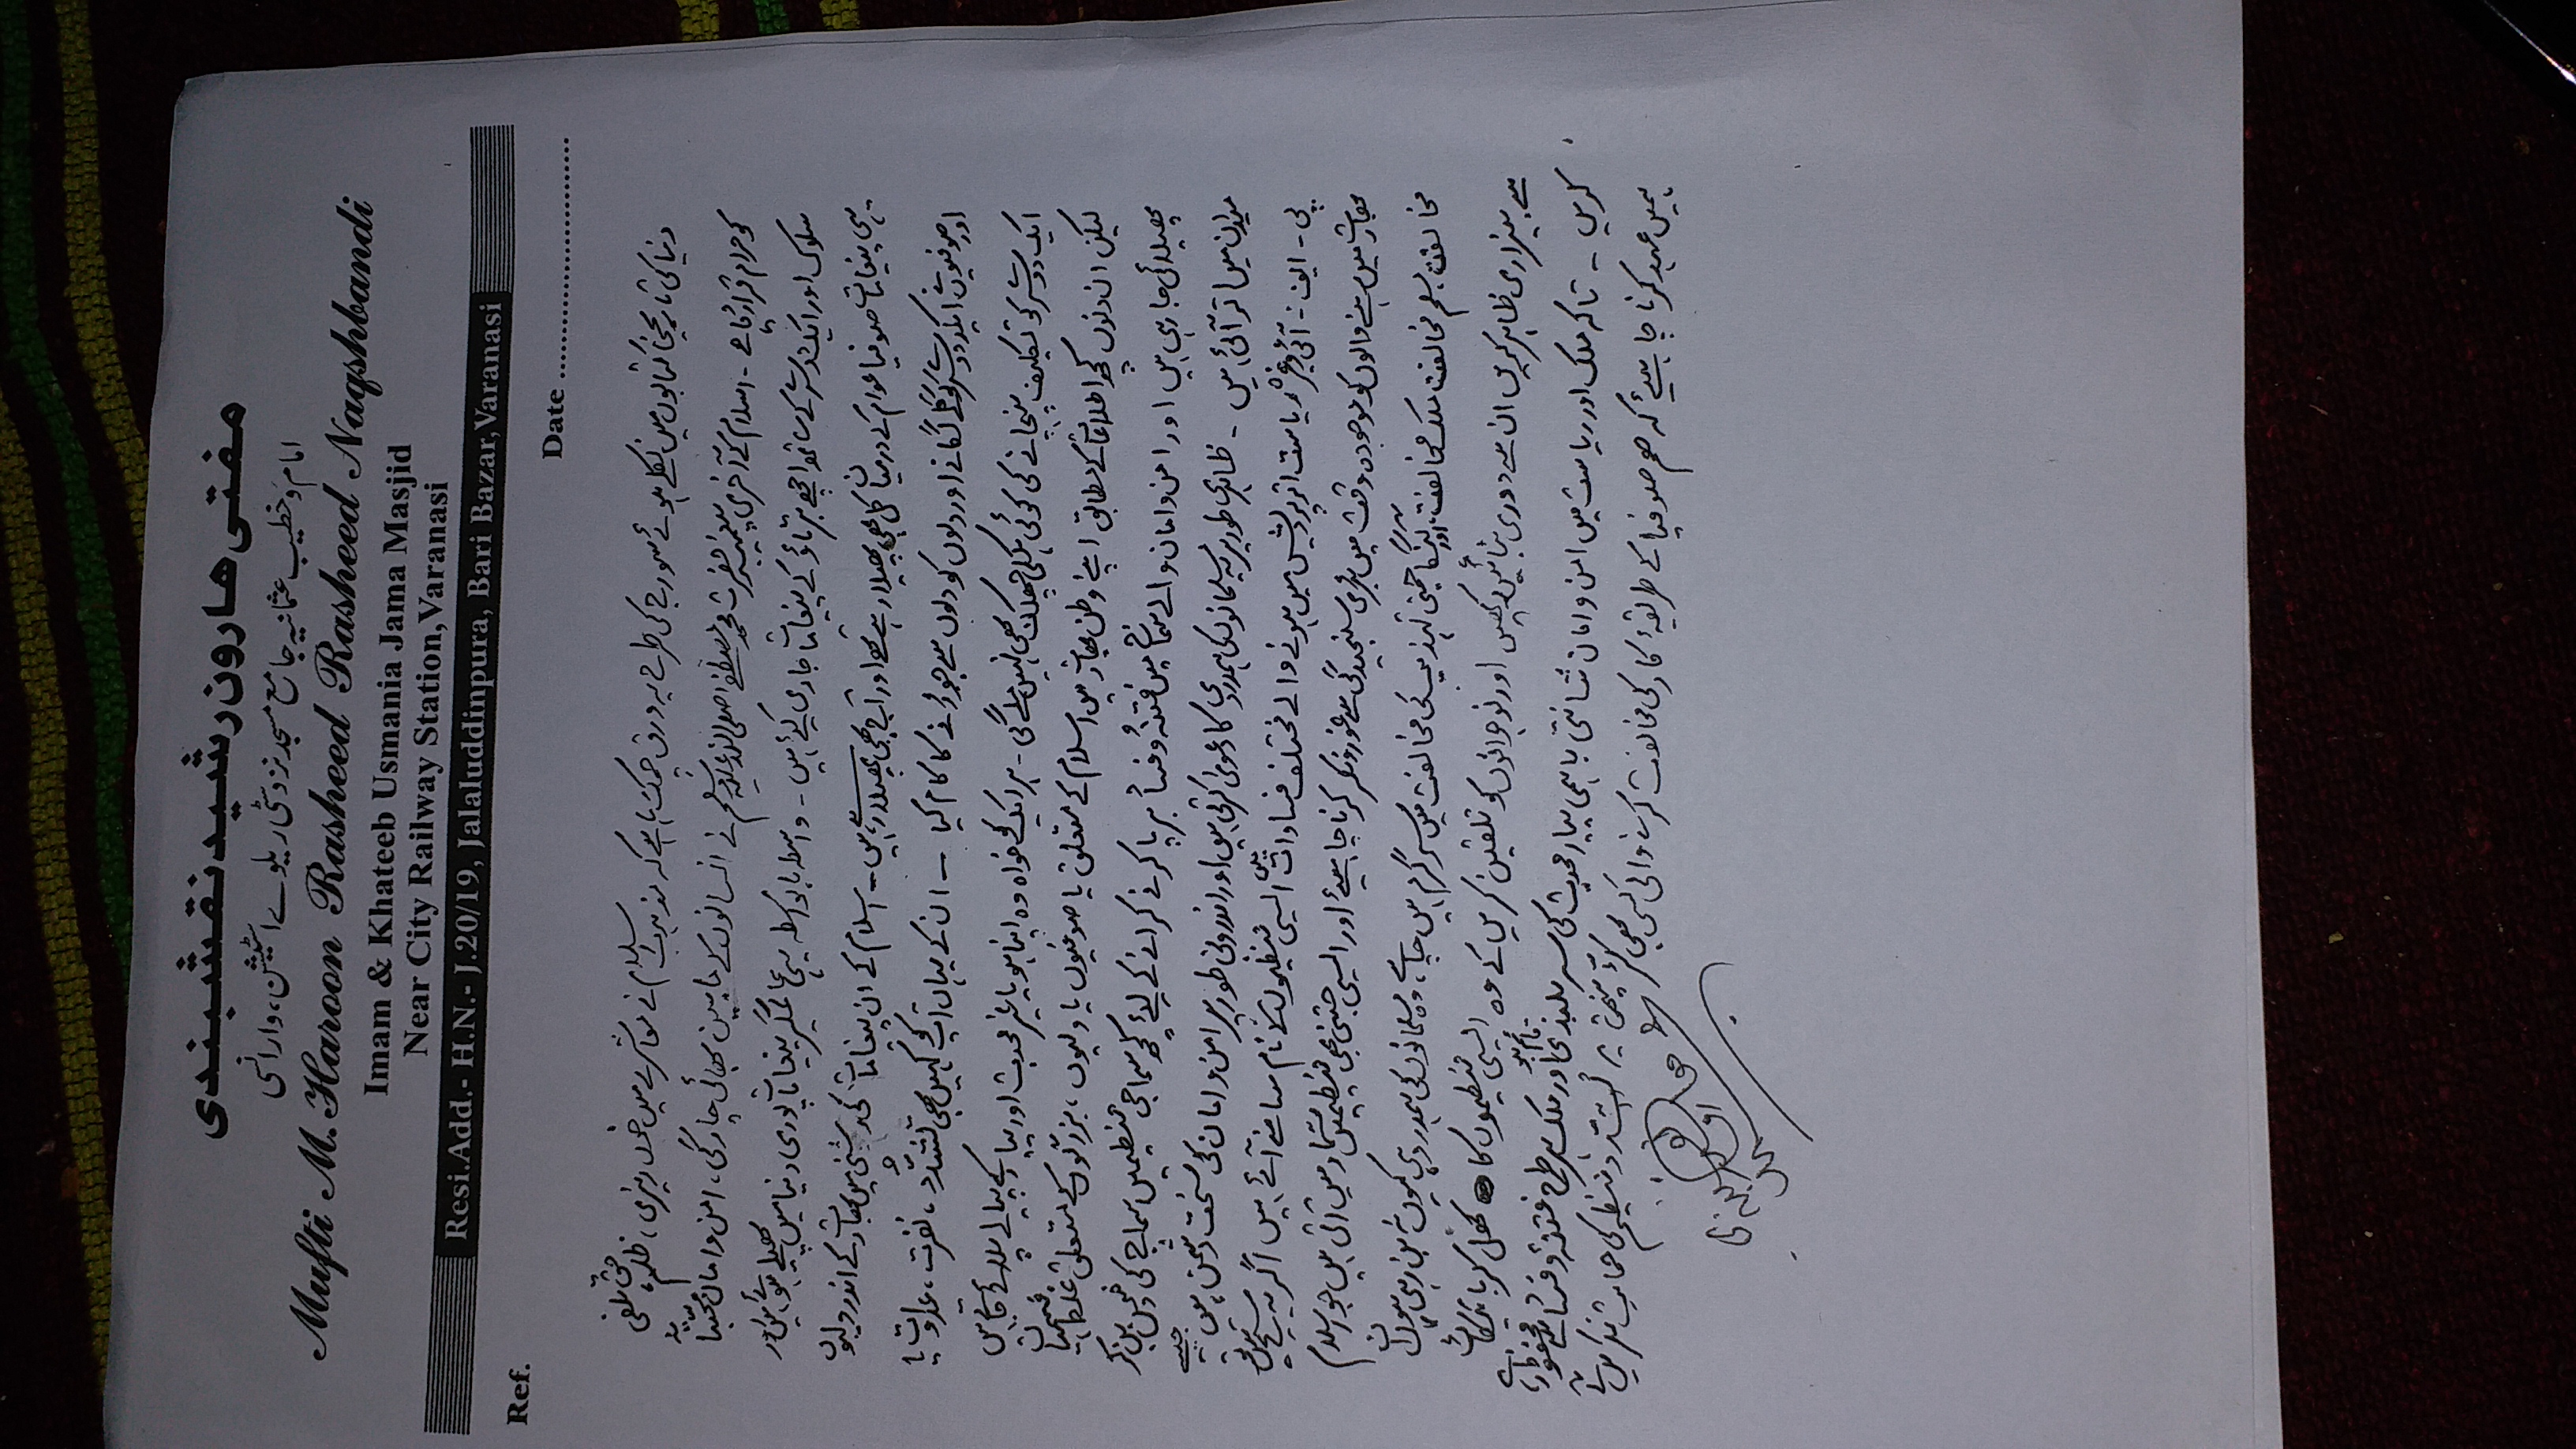 مفتی ھارون رشید نقشبندی
امام و خطیب عثمانیہ جامع مسجد نزد سٹی ریلوے اسٹیشن، وارانسی
Mufti M. Haroon Rasheed Rasheed Naqshbandi
Imam & Khateeb Usmania Jama Masjid
Near City Railway Station,Varanasi
Resi.Add.- H.N.- J.20/19, Jalaluddinpura, Bari Bazar,Varanasi
Ref.
Date ............................
دنیا کی تاریخی کتابوں میں نکلے ہوئے سورج کی طرح یہ ورق چمک رہا ہے کہ مذہب اسلام نے معاشرے میں خوں ریزی، ظلم، حق تلفی
کو حرام قرار دیا ہے ۔ اسلام کے آخری پیغمبر حضرت محمد مصطفےٰ صلی اللہ علیہ وسلم نے انسانوں کے مابین بھائی چارگی، امن و امان محبتانہ
سلوک اور ایک دوسرے کے ساتھ اچھے برتاؤ کے پیغامات جاری کیئے ہیں ۔ واسطہ بالواسطہ یہی عالمگیر پیغامات پوری دنیا میں پھیلے ہوئے ہیں اور
یہی پیغامات صوفیا عوام کے درمیان کل بھی پھیلا رہے تھے اور آج بھی پھیلا رہے ہیں ۔ اسلام کے ان پیغامات کی روشنی میں بھارت کے اندر ولیوں
اور صوفیوں نے ایک دوسرے کو گلے لگانے اور دلوں کو دلوں سے جوڑنے کا کام کیا ۔ ان کے یہاں آپ کو کہیں بھی تشدُّد، نفرت، عداوت یا
ایک دوسرے کو تکلیف پہنچانے کی کوئی ہلکی جھلک بھی نہیں ملے گی ۔ ہر ایک کو خواہ وہ اپنا ہو یا غیر محبت اور پیار کے پیالے پلائے جاتے ہیں
لیکن ان دنوں کچھ اطلاعات کے مطابق اپنے وطن بھارت میں اسلام کے متعلق یا صوفیوں یا ولیوں، بزرگوں کے متعلق غلط فہمیاں
پھیلائی جا رہی ہیں اور امن و امان والے سماج میں فتنہ و فساد برپا کرنے کرانے کے لیئے کچھ سماجی تنظیمیں سماج کی دشمن بن کر
میدان میں اتر آئی ہیں ۔ ظاہری طور پر یہ مسلمانوں کی ہمدردی کا دعویٰ کرتی ہیں اور اندرونی طور پر امن و امان کی سخت دشمن ہیں جیسے
پی ۔ ایف ۔ آئی وغیرہ ریاست اتر پردیش میں ہونے والے مختلف فسادات میں ایسی تنظیموں کے نام سامنے آئے ہیں اگر یہ سچ ہیں تو
بھارت میں رہنے والوں کو موجودہ وقت میں بڑی سنجیدگی سے غور و فکر کرنا چاہیئے اور ایسی جتنی بھی تنظیمیں شمار میں آتی ہیں جو اسلام
مخالفت مسلم مخالفت ملک مخالفت، اور گنگا جمنی تہذیب کی مخالفت میں سرگرم ہیں چاہے، وہ مسلمانوں کی ہمدرد ہی کیوں نہ بن رہی ہوں ان
سے بیزاری ظاہر کریں ان سے دوری بنائیں رکھیں اور نوجوانوں کو تلقین کریں کے وہ ایسی تنظیموں کا کھل کر بائیکاٹ
کریں ۔ تاکہ ملک اور ریاست میں امن و امان شانتی باہمی پیار محبت کی سربلندی قائم ہو اور ملک ہر طرح فتنہ و فساد سے محفوظ رہے،
ہمیں عہد کرنا چاہیئے کہ ھم صوفیا کے طریقۂ کار کی مخالفت کرنے والی کسی بھی کٹر پنتھی پر تشدّد تنظیم کی حمایت نہ کریں گے